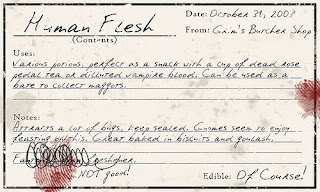 Human Flesh
Date: October 31, 2008
(Contents)
From: Grim's Butcher Shop
Uses:
Various potions, perfect as a snack with a cup of dead rose
pedal tea or dilluted vampire blood. Can be used as a
bate to collect maggots.
Notes:
Attracts a lot of bugs, keep sealed. Gnomes seem to enjoy
feasting on this. Great baked in biscuits and goulash.
NOT good!
Edible: Of Course!